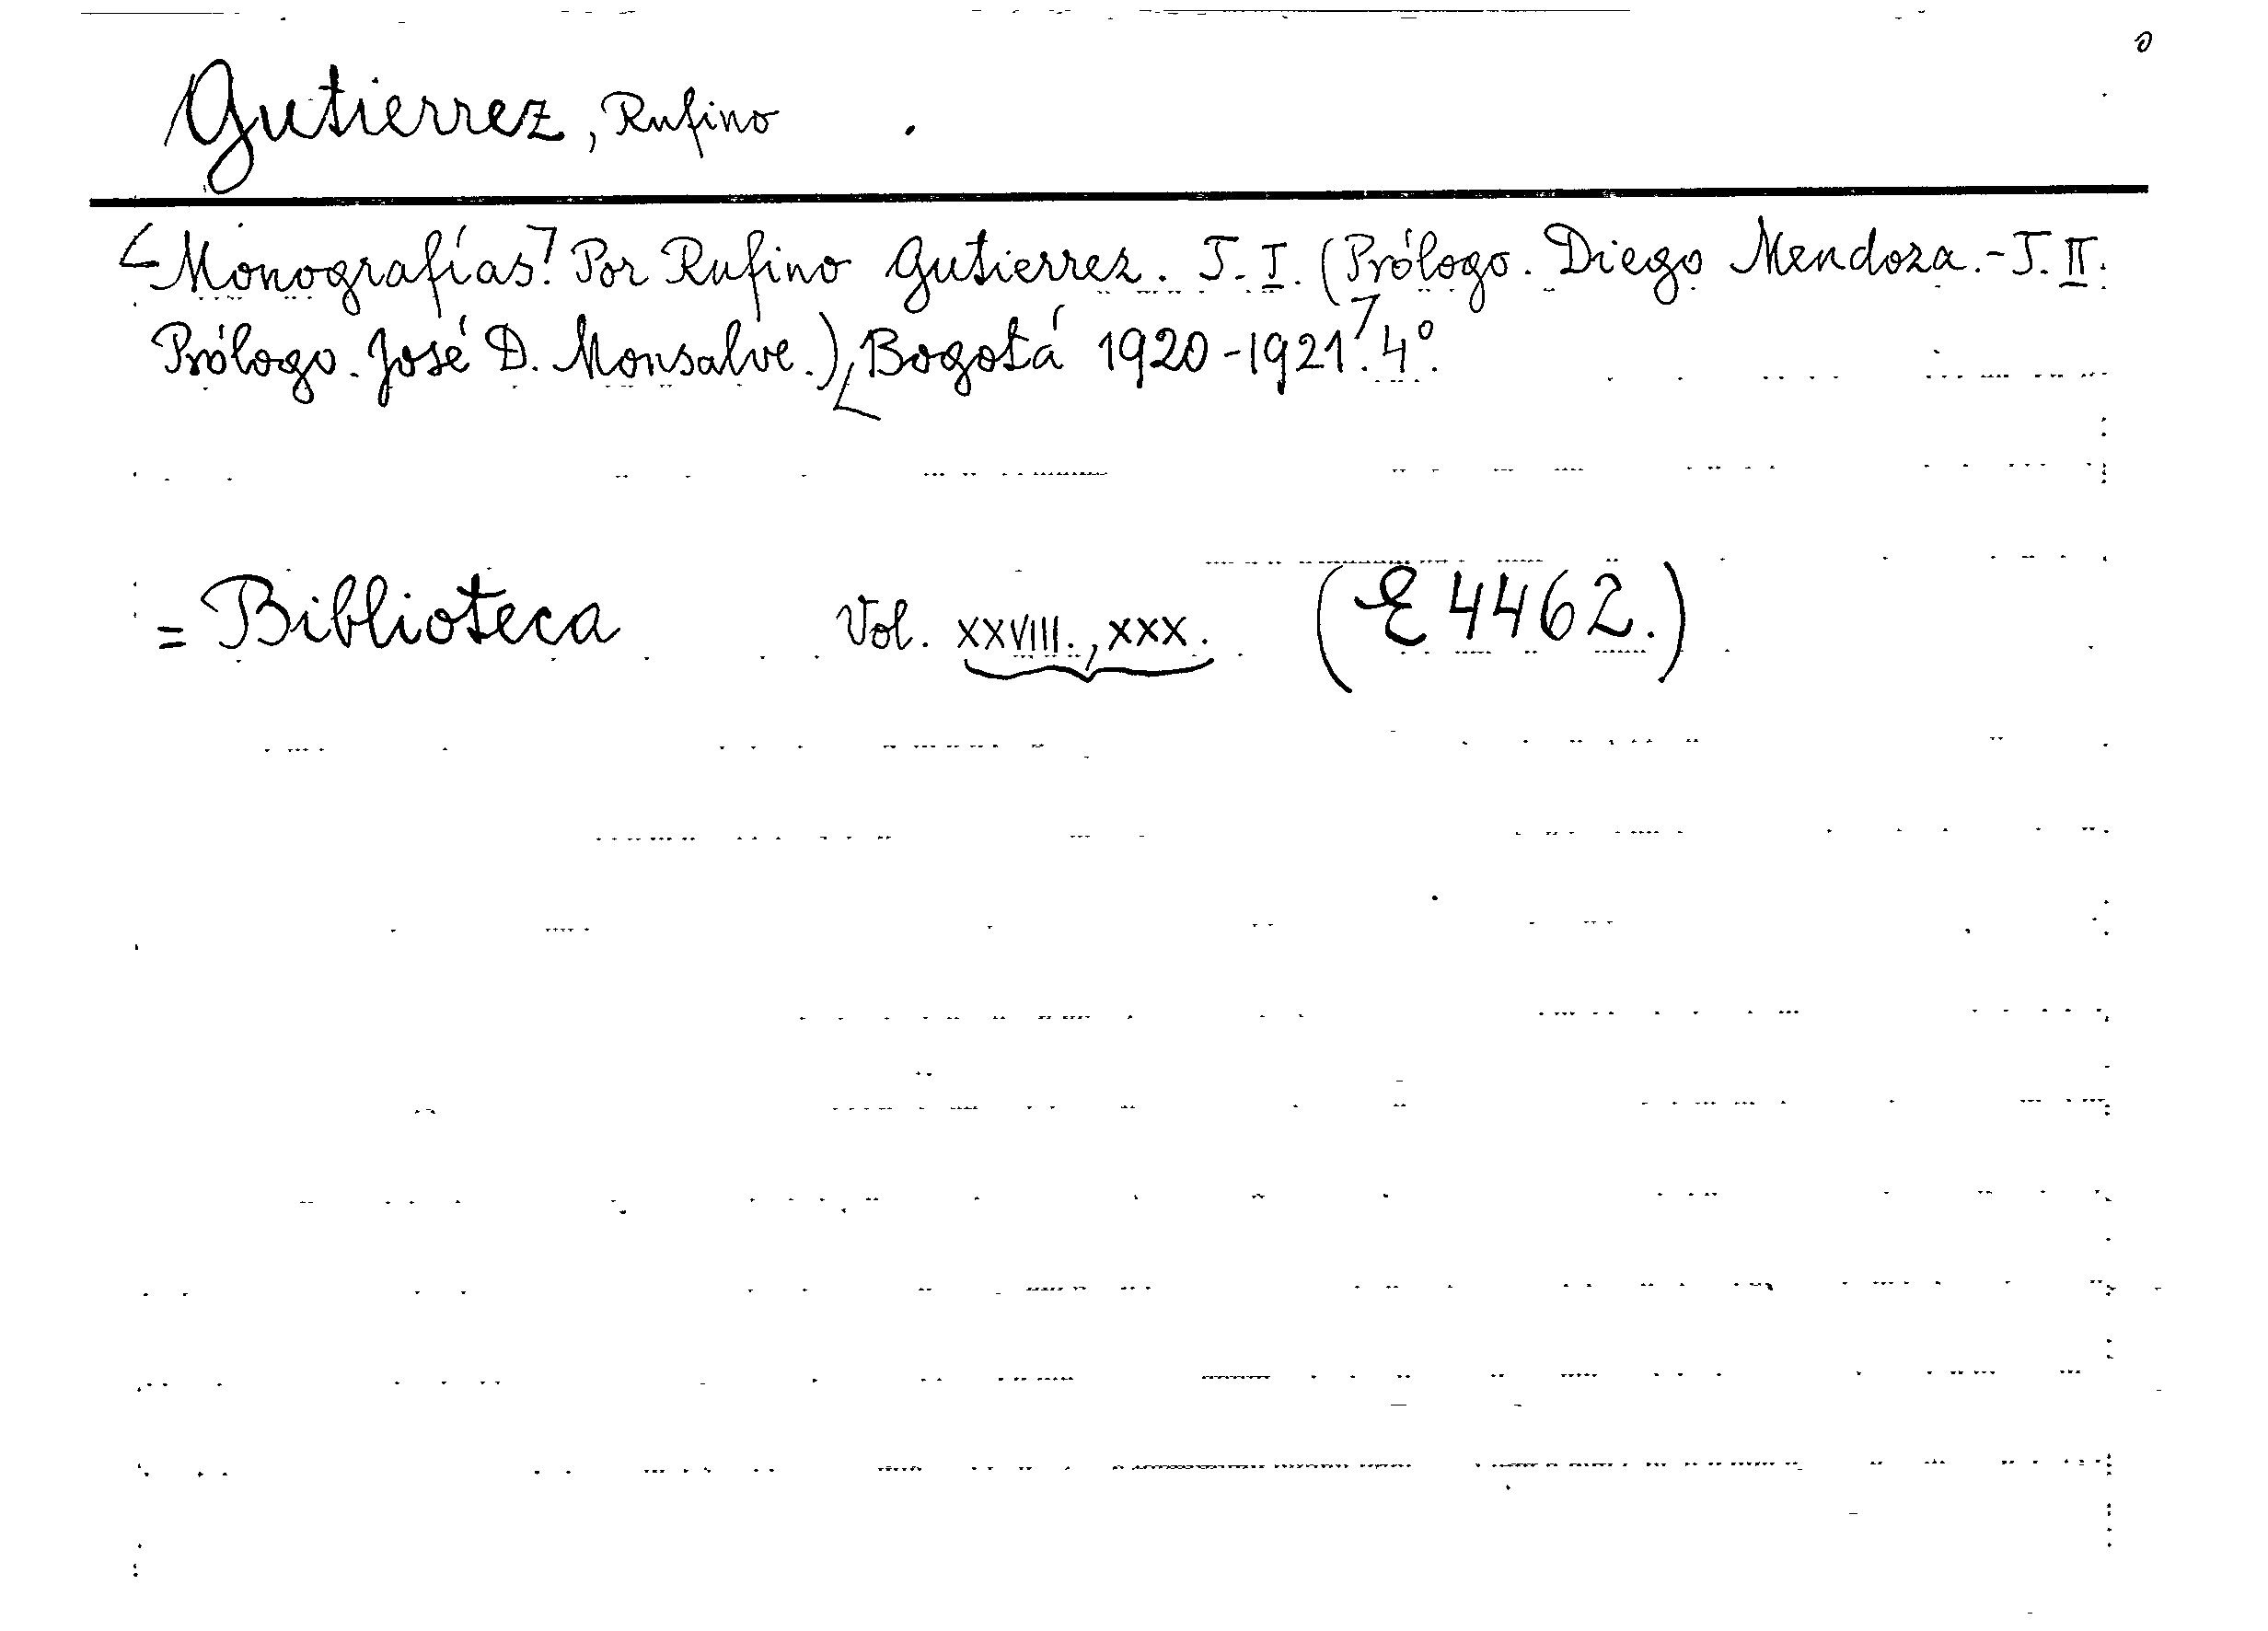 Gutierrez, Rufino
Monografías. Por Rufino Gutierrez. T. I. (Prólogo. Diego Mendoza. - T. II.
Prólogo. José D. Monsalve.) Bogotá 1920-1921. 4°.
= Biblioteca Vol. XXVIII., XXX. (E 4462.)